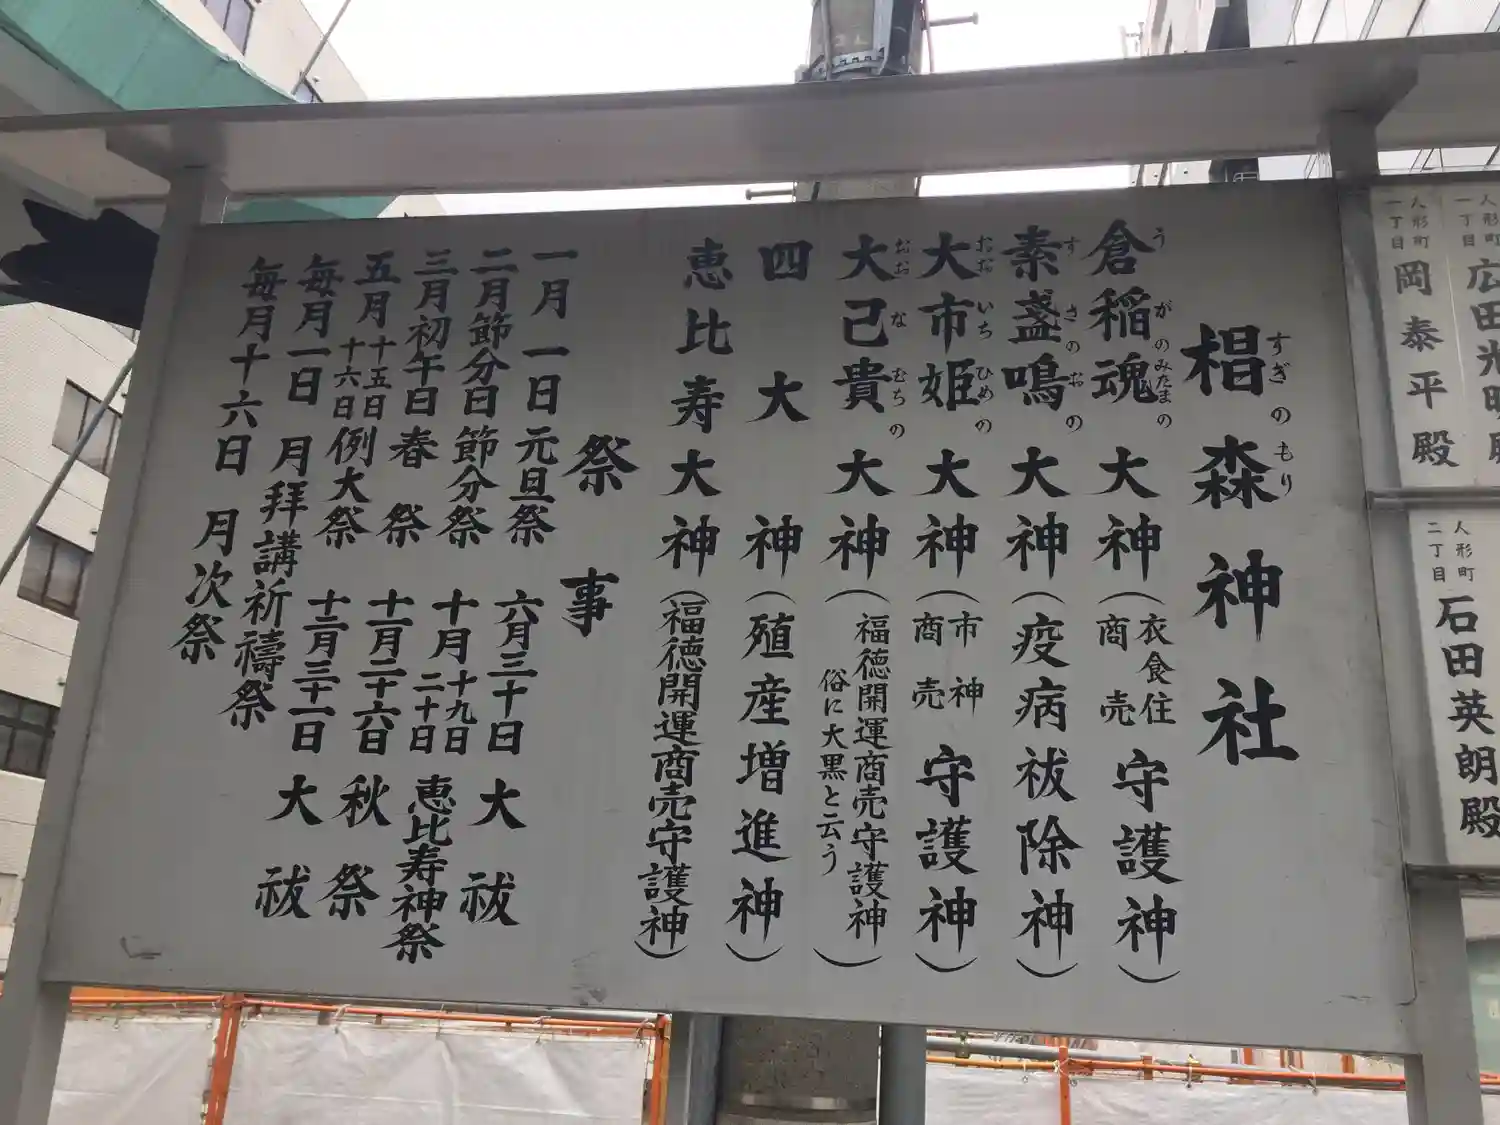 椙森神社
すぎのもり
倉稲魂大神(衣食住商売守護神)
うがのみたまの
素盞鳴大神(疫病祓除神)
すさのおの
大市姫大神(市神商売守護神)
おおいちひめの
大己貴大神(福徳開運商売守護神 俗に大黒と云う)
おおなむちの
四大神(殖産増進神)
恵比寿大神(福徳開運商売守護神)
祭事
一月一日元旦祭
二月節分日節分祭
三月初午日春祭
五月十五日十六日例大祭
毎月一日月拝講祈禱祭
毎月十六日月次祭
六月三十日大祓
十月十九日二十日恵比寿神祭
十一月二十六日秋祭
十二月三十一日大祓
人形町一丁目
広田光
人形町一丁目
岡泰平殿
人形町二丁目
石田英朗殿